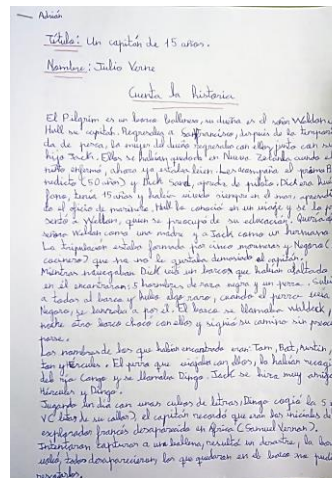 Adrián
Título: Un capitán de 15 años.
Nombre: Julio Verne
Cuenta la historia
El Pilgrim es un barco ballenero, su dueño es el señor Weldon
Hull su capitán. Regresaba a San Francisco, después de la tempora
da de pesca, la mujer del dueño regresaba con ellos junto con su
hijo Jack. Ellos se habían quedado en Nueva Zelanda cuando el
niño enfermó, ahora ya estaba bien. Les acompaña el primo B
nedicto (50 años) y Dick Sand, aprendiz de piloto. Dick era huér
fono, tenía 15 años y había vivido siempre en el mar, aprendi
do el oficio de marinero. Hull lo conoció en un viaje y se lo pre
sentó a Weldon, quien se preocupó de su educación. Quería a
señora Weldon como una madre y a Jack como un hermano
La tripulación estaba formada por cinco marineros y Negoro (
cocinero) que no le gustaba demasiado al capitán.
Mientras navegaban Dick vio un barco que había
en él encontraron: 5 hombres de raza negra y un perro. Subie
a todos al barco y hubo algo raro, cuando el perro veía
Negoro, se a por él. El barco se llamaba Waldeck,
noche otro barco chocó con ellos y siguió su camino sin preo
parse.
Los nombres de los que habían encontrado eran: Tom, Bat, Austin,
ton y Hércules. El perro que viajaba con ellos, lo habían recogi
del río Congo y se llamaba Dingo. Jack se hizo muy amigo
Hércules y Dingo.
Jugando un día con unos cubos de letras, Dingo cogió la S
V( letras de su collar), el capitán recordó que eran las iniciales de
explorador francés desaparecido en África (Samuel Vernon).
Intentaron capturar a una ballena, resultó un desastre, la ba
todos desaparecieron, los que quedaron en el barco no pudi
rescatarlos.